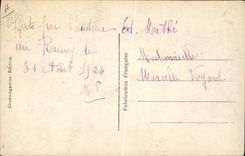 Offerte par l'auteur
au Bourg le
31 Août 1924
M.P.
Ed. Mathé
Mademoiselle
Marcelle Voyard
Fabrication Française